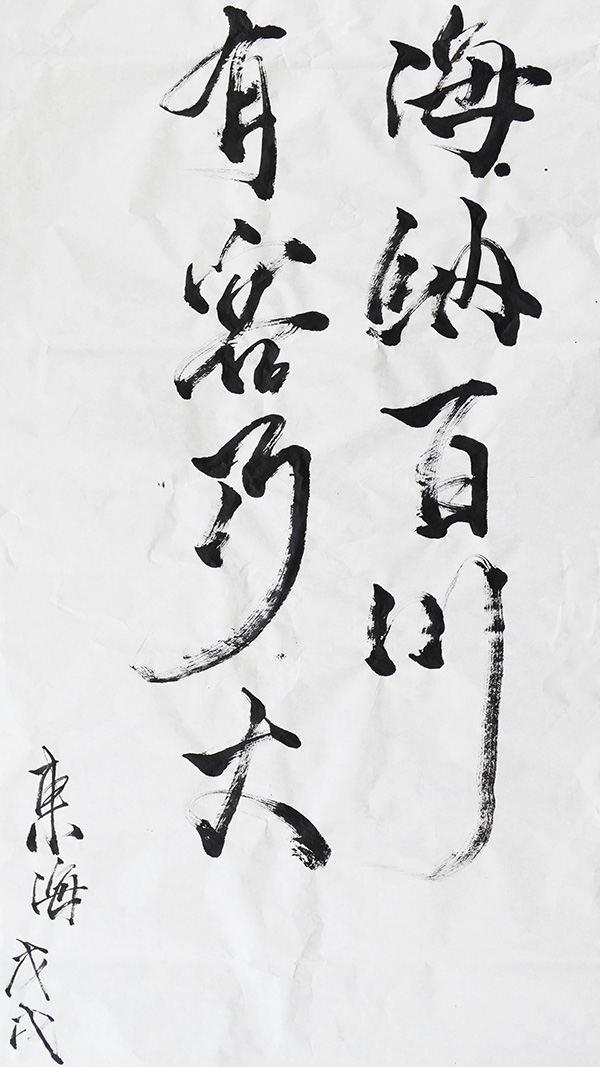 海納百川
有容乃大
東海戊戌